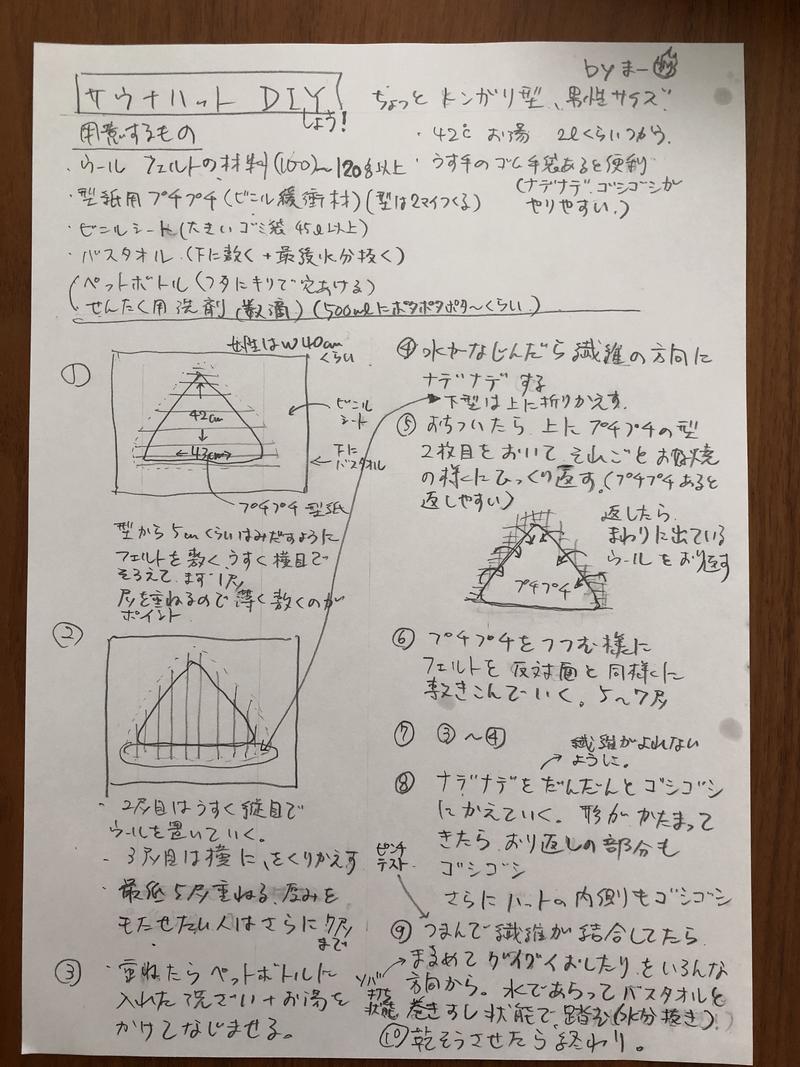 by まー
サウナハット DIY しよう!
ちょっと トンガリ型、男性サイズ
用意するもの
・42℃ お湯 2ℓくらいつかう。
・ウール フェルトの材料(100)〜120g以上
・うす手のゴム手袋あると便利
(ナデナデ、ゴシゴシが
やりやすい。)
・型紙用 プチプチ(ビニル緩衝材)(型は2マイつくる)
・ビニルシート(大きいゴミ袋 45ℓ以上)
・バスタオル(下に敷く+最後水分抜く)
ペットボトル(フタにキリで穴あける)
せんたく用 洗剤(数滴)(500mlにポタポタポタ〜くらい)
女性はW40cm
くらい
①
42cm
43cm
ビニル
シート
下に
バスタオル
プチプチ 型紙
型から5cmくらいはみだすように
フェルトを敷く うすく横目で
そろえて まず1層
層を重ねるので 薄く敷くのが
ポイント
②
・2層目はうすく縦目で
ウールを置いていく。
・3層目は横に、をくりかえす
・最低5層重ねる、厚みを
もたせたい人はさらに7層
まで
③ ・重ねたらペットボトルに
入れた洗ざい+お湯を
かけてなじませる。
④ 水がなじんだら繊維の方向に
ナデナデする
下型は上に折りかえす。
⑤ おちついたら、上にプチプチの型
2枚目をおいて それごとお好焼
の様にひっくり返す。(プチプチあると
返しやすい)
返したら
まわりに出ている
ウールをおり返す
プチプチ
⑥ プチプチをつつむ様に
フェルトを反対面と同様に
敷きこんでいく。5〜7層
⑦ ③〜④
繊維がよれない
ように。
⑧ ナデナデをだんだんとゴシゴシ
にかえていく。形がかたまって
きたら おり返しの部分も
ゴシゴシ
さらにハットの内側もゴシゴシ
ピンチ
テスト
⑨ つまんで繊維が結合してたら
まるめてグイグイおしたりをいろんな
方向から。水であらってバスタオルと
巻きすし状態で、踏む(水分抜き)
ソバ
打ち
状態
⑩ 乾そうさせたら終わり。